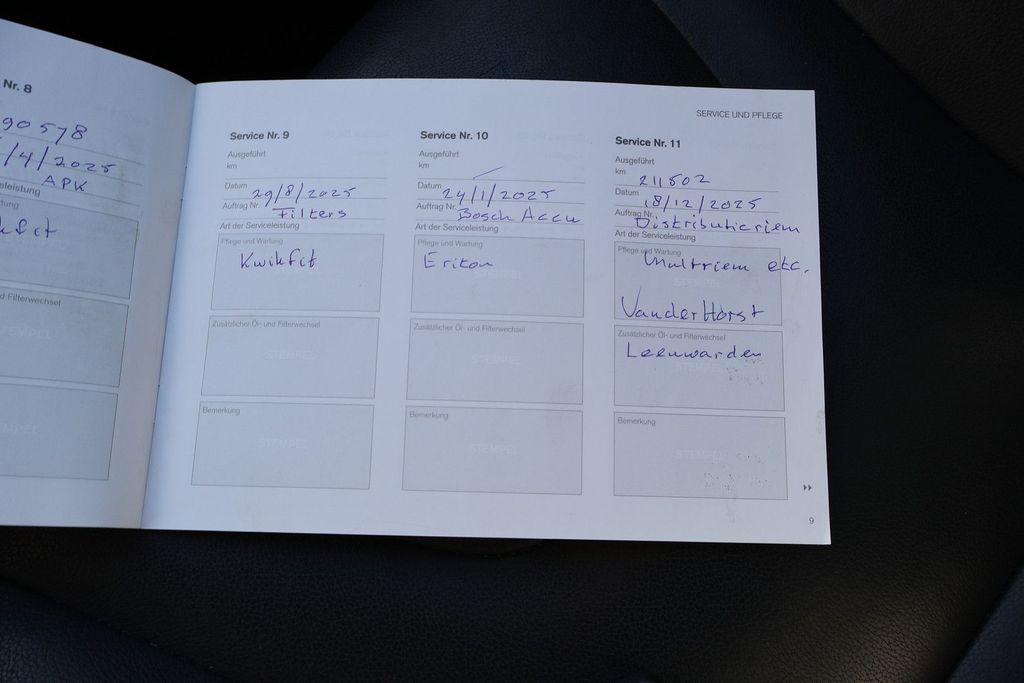 Nr. 8
90578
/4/2025
APK
eleistung
tung
d Filterwechsel
STEMPEL
MPEL
SERVICE UND PFLEGE
Service Nr. 9
Ausgeführt
km
Datum 29/8/2025
Auftrag Nr. Filters
Art der Serviceleistung
Pflege und Wartung
Kwikfit
Zusätzlicher Öl- und Filterwechsel
STEMPEL
Bemerkung
STEMPEL
Service Nr. 10
Ausgeführt
km
Datum 24/1/2025
Auftrag Nr. Bosch Accu
Art der Serviceleistung
Pflege und Wartung
Zusätzlicher Öl- und Filterwechsel
STEMPEL
Bemerkung
STEMPEL
Service Nr. 11
Ausgeführt
km 211502
Datum 18/12/2025
Auftrag Nr. Distributieriem
Art der Serviceleistung
Pflege und Wartung
Multriem etc.
STEMPEL
VanderHorst
Zusätzlicher Öl- und Filterwechsel
Leeuwarden
STEMPEL
Bemerkung
STEMPEL
9